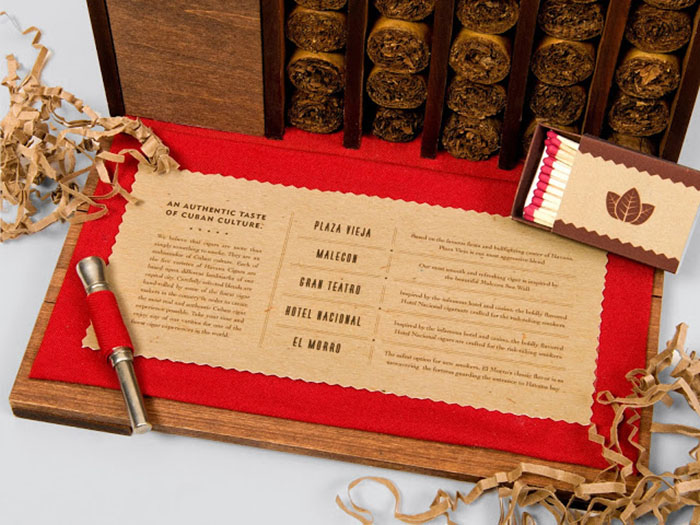 AN AUTHENTIC TASTE
OF CUBAN CULTURE.
We believe that cigars are more than
simply something to smoke. They are an
ambassador of Cuban culture. Each of
the five varieties of Havana Cigars are
based upon different landmarks of our
capital city. Carefully selected blends are
hand-rolled by some of the finest cigar
makers in the country in order to create
the most real and authentic Cuban cigar
experience possible. Take your time and
enjoy any of our varities for one of the
finest cigar experiences in the world.
PLAZA VIEJA
Based on the famous fiesta and bullfighting center of Havana,
Plaza Vieja is our most aggressive blend.
MALECON
Our most smooth and refreshing cigar is inspired by
the beautiful Malecon Sea Wall.
GRAN TEATRO
Inspired by the infamous hotel and casino, the boldly flavored
Hotel Nacional cigars are crafted for the risk-taking smokers.
HOTEL NACIONAL
Inspired by the infamous hotel and casino, the boldly flavored
Hotel Nacional cigars are crafted for the risk-taking smokers.
EL MORRO
The safest option for new smokers, El Morro's classic flavor is as
unwavering the fortress guarding the entrance to Havana bay.